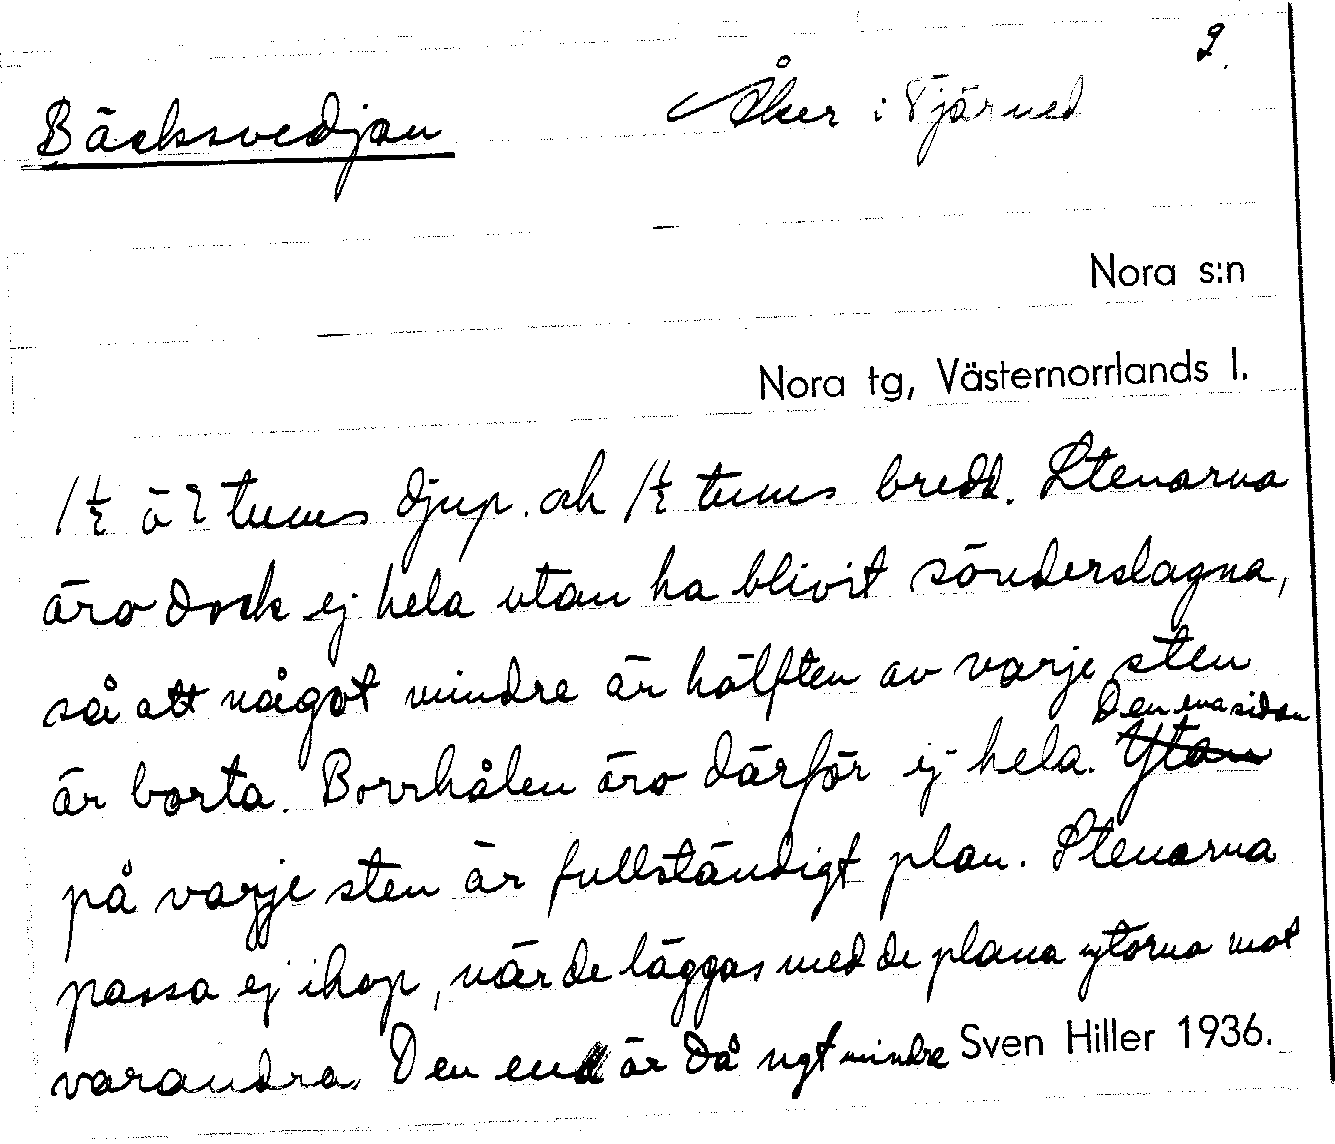 2.
Bäcksvedjan Åker i Tjärned
Nora s:n
Nora tg, Västernorrlands l.
1½ à 2 tums djup. och 1½ tums bredd. Stenarna
äro dock ej hela utan ha blivit sönderslagna,
så att något mindre är hälften av varje sten
Den ena sidan
är borta. Borrhålen äro därför ej hela. Ytan
på varje sten är fullständigt plan. Stenarna
passa ej ihop, när de läggas med de plana ytorna mot
varandra. Den ena är då ngt mindre Sven Hiller 1936.